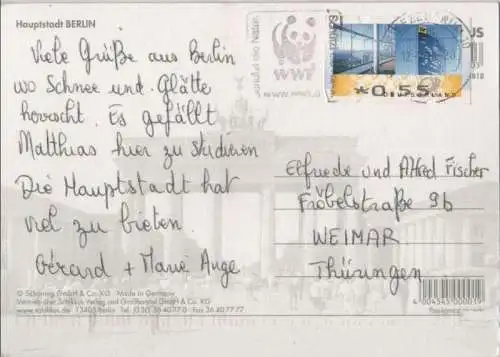 Hauptstadt BERLIN
Viele Grüße aus Berlin
wo Schnee und Glätte
herrscht. Es gefällt
Matthias hier zu studieren
Die Hauptstadt hat
viel zu bieten.
Gérard + Marie Ange
© Schöning GmbH & Co. KG Made in Germany
Vertrieb über Schikkus Verlag und Großhandel GmbH & Co. KG
13405 Berlin Tel. (030) 36 40 77 0 Fax 36 40 77 77
WWF
www.wwf.d
*0,55
DEUTSCHLAND
Elfriede und Alfred Fischer
Fröbelstraße 9b
WEIMAR
Thüringen
4 004545 000019